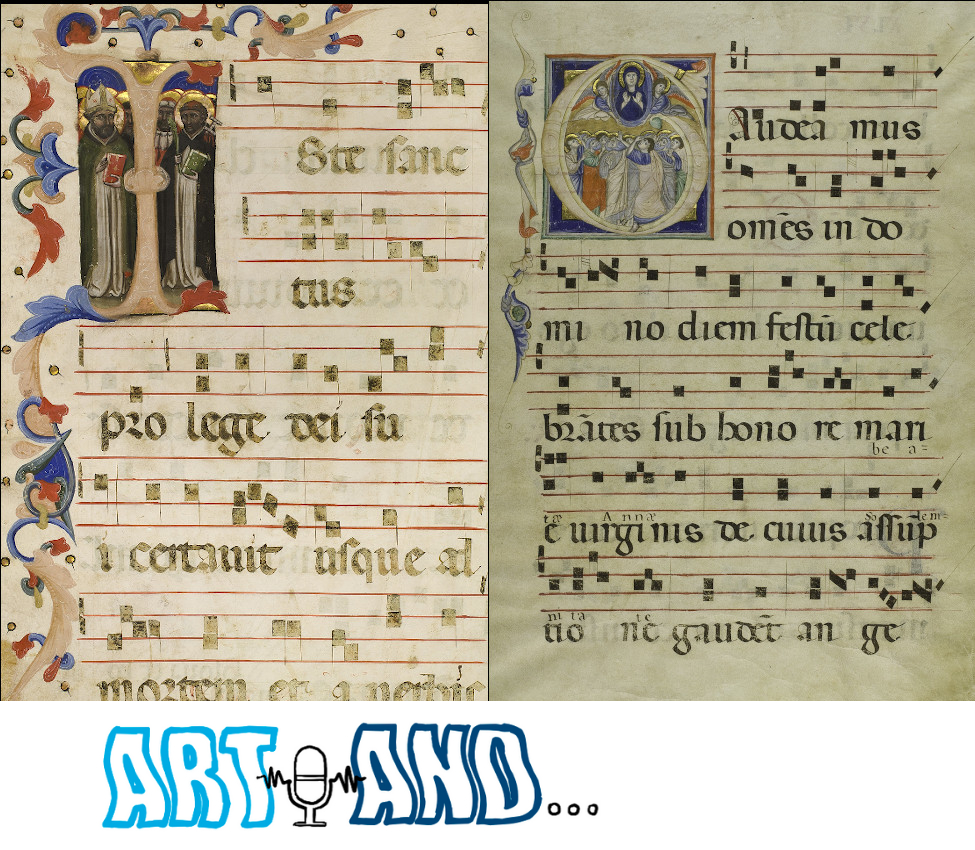 Iste sanc
tus
pro lege dei su
i certauit usque ad
mortem et a uerbis
Gaudea mus
om̄es in do
mi no diem festū cele
brātes sub bono re mari
be a =
e uirginis de cuius assūp
tæ Annæ So lem=
tio ne gaudēt an ge
ni ta te
ART AND...